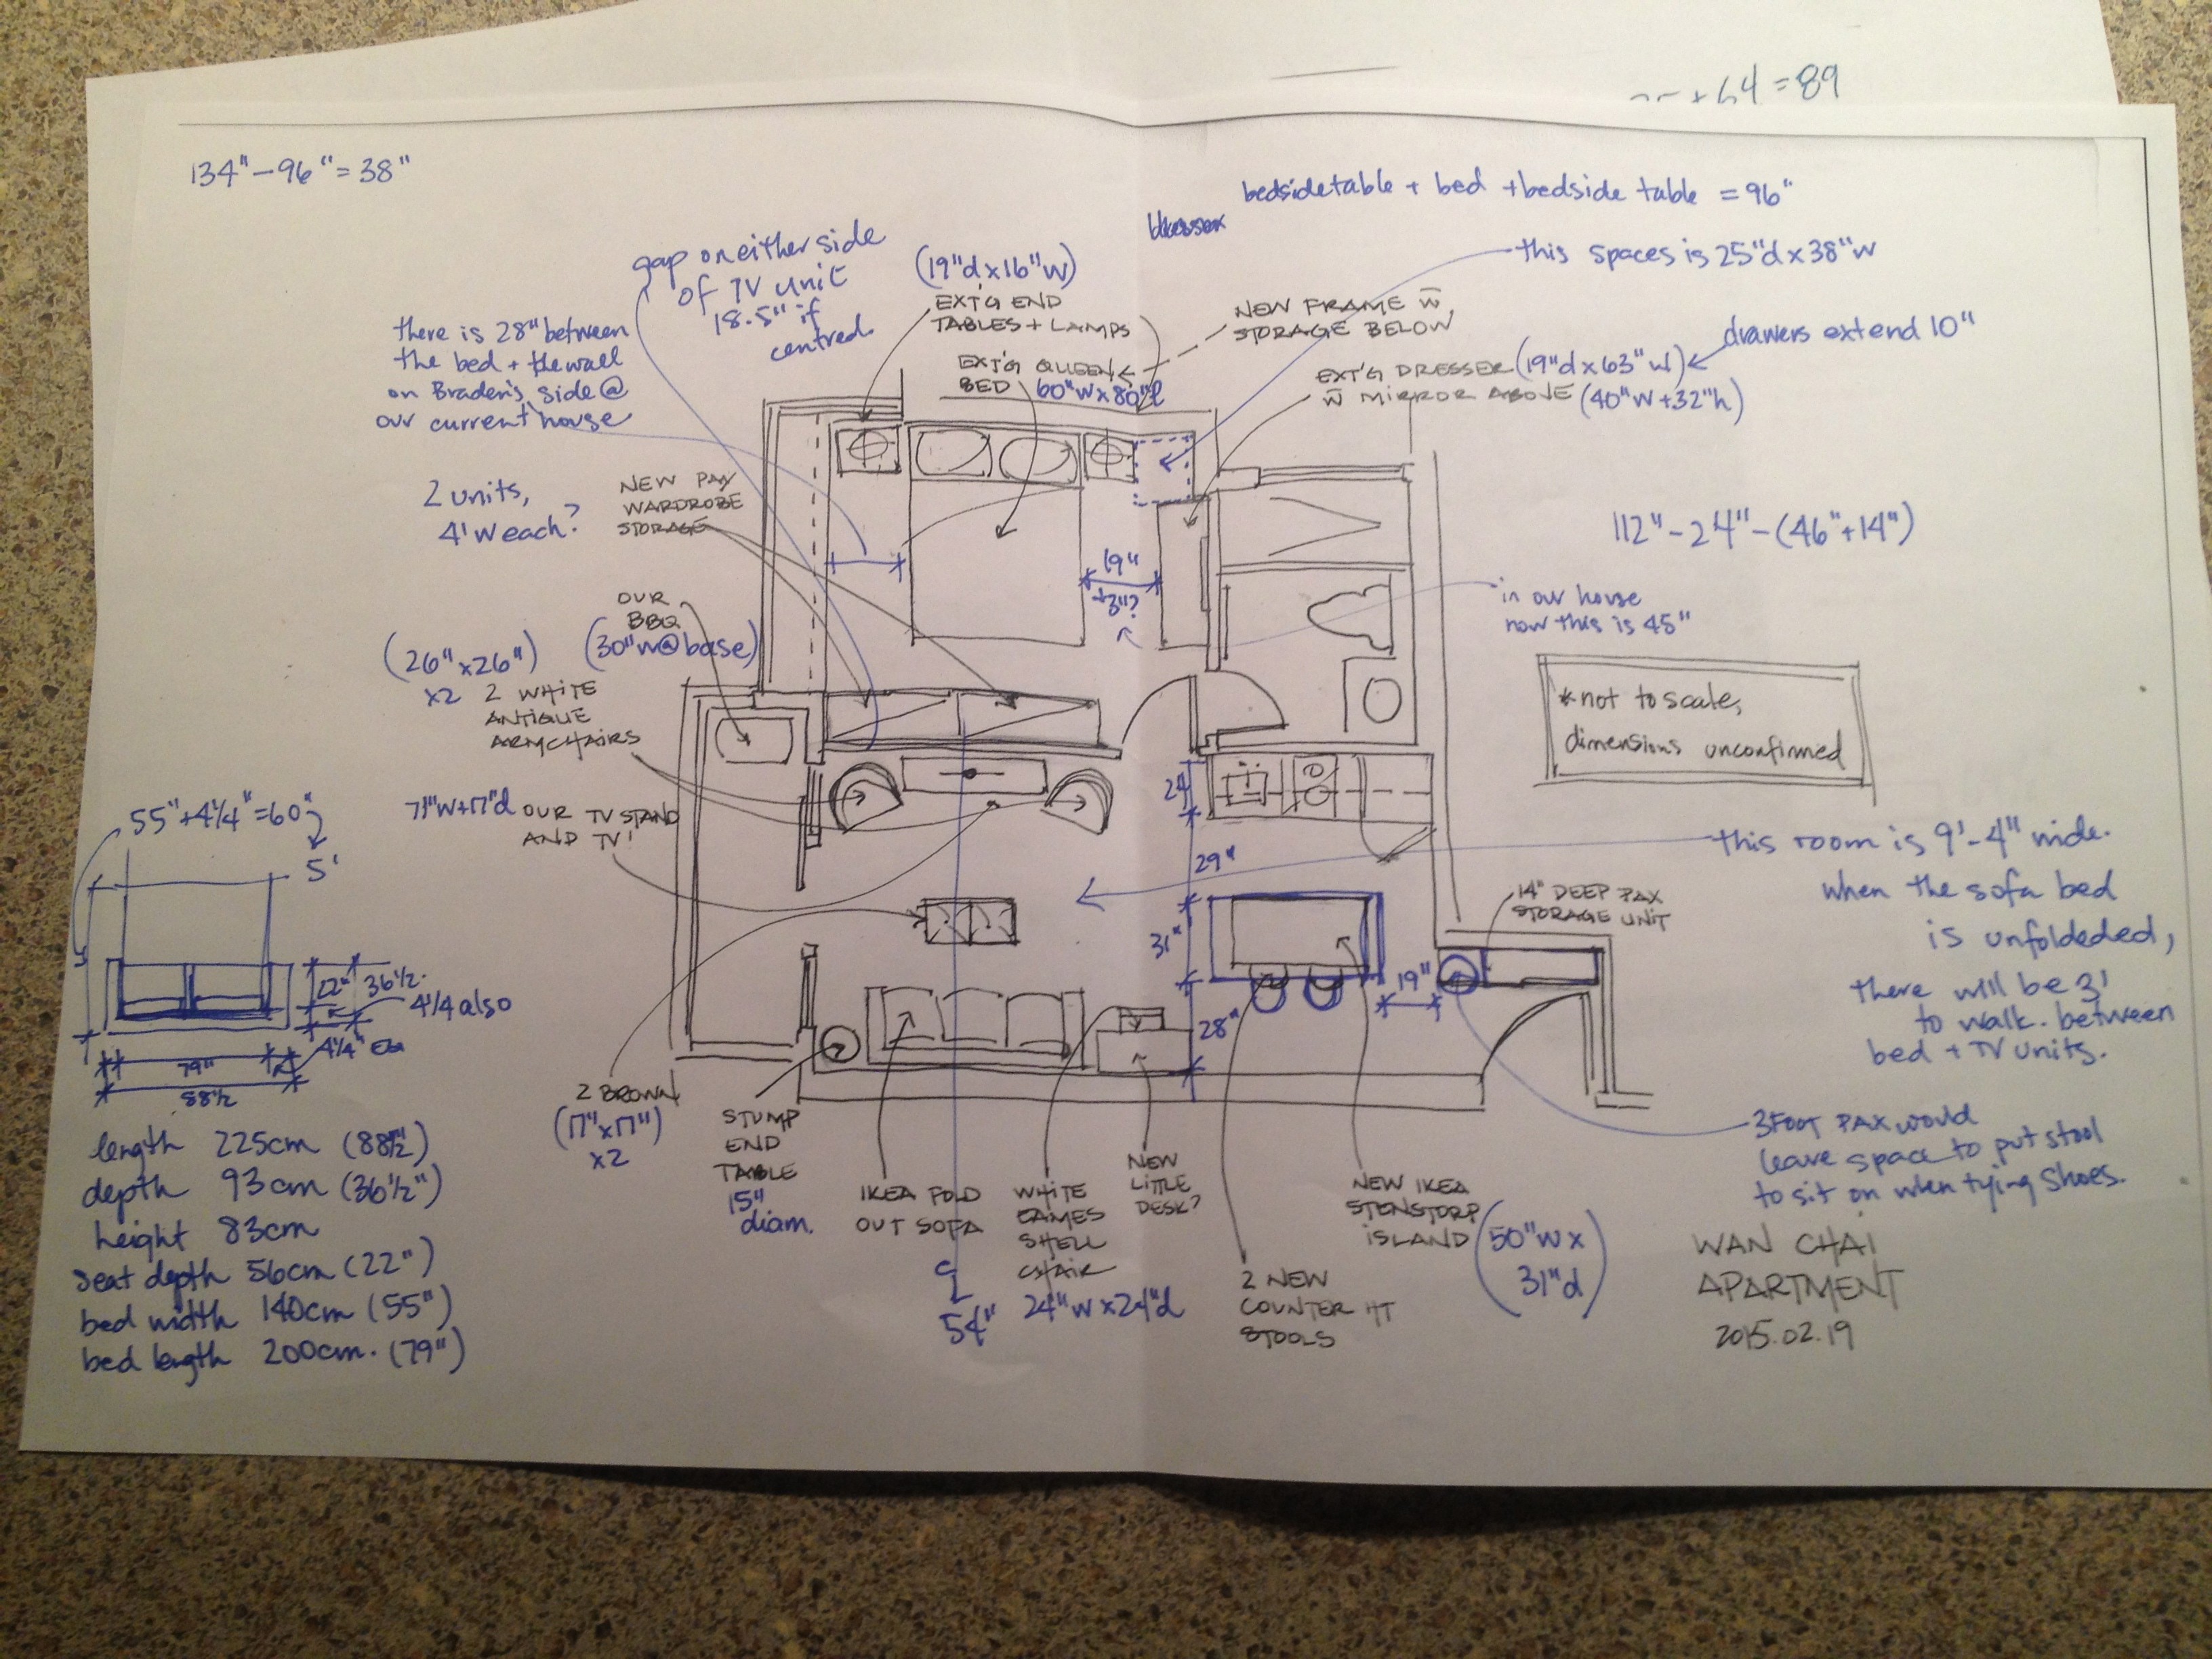 +64=89
134"-96"=38"
bedside table + bed + bedside table = 96"
this spaces is 25"d x 38"w
gap on either side
of TV unit
18.5" if
centred
(19"d x 16"w)
EXT'G END
TABLES + LAMPS
NEW FRAME w
STORAGE BELOW
there is 28" between
the bed + the wall
on Braden's side @
our current house
EXT'G QUEEN
BED 60"w x 80"l
EXT'G DRESSER (19"d x 63"w)
w MIRROR ABOVE (40"w + 32"h)
drawers extend 10"
2 units,
4'w each?
NEW PAX
WARDROBE
STORAGE
112"-24"-(46"+14")
19"
+3"?
in our house
now this is 45"
OUR
BBQ
(30"w@base)
(26"x26")
x2
2 WHITE
ANTIQUE
ARMCHAIRS
*not to scale,
dimensions unconfirmed
71"w+17"d
OUR TV STAND
AND TV!
24"
29"
31"
28"
19"
this room is 9'-4" wide.
when the sofa bed
is unfoldeded,
there will be 3'
to walk. between
bed + TV units.
14" DEEP PAX
STORAGE UNIT
55"+4¼"=60"
5'
22"
36½"
4¼ also
4¼" ea
79"
88½
length 225cm (88½")
depth 93cm (36½")
height 83cm
seat depth 56cm (22")
bed width 140cm (55")
bed length 200cm. (79")
2 BROWN
(17"x17")
x2
STUMP
END
TABLE
15"
diam.
IKEA FOLD
OUT SOFA
54"
WHITE
EAMES
SHELL
CHAIR
24"w x 24"d
NEW
LITTLE
DESK?
2 NEW
COUNTER HT
STOOLS
NEW IKEA
STENSTORP
ISLAND
(50"w x
31"d)
3 FOOT PAX would
leave space to put stool
to sit on when tying shoes.
WAN CHAI
APARTMENT
2015.02.19